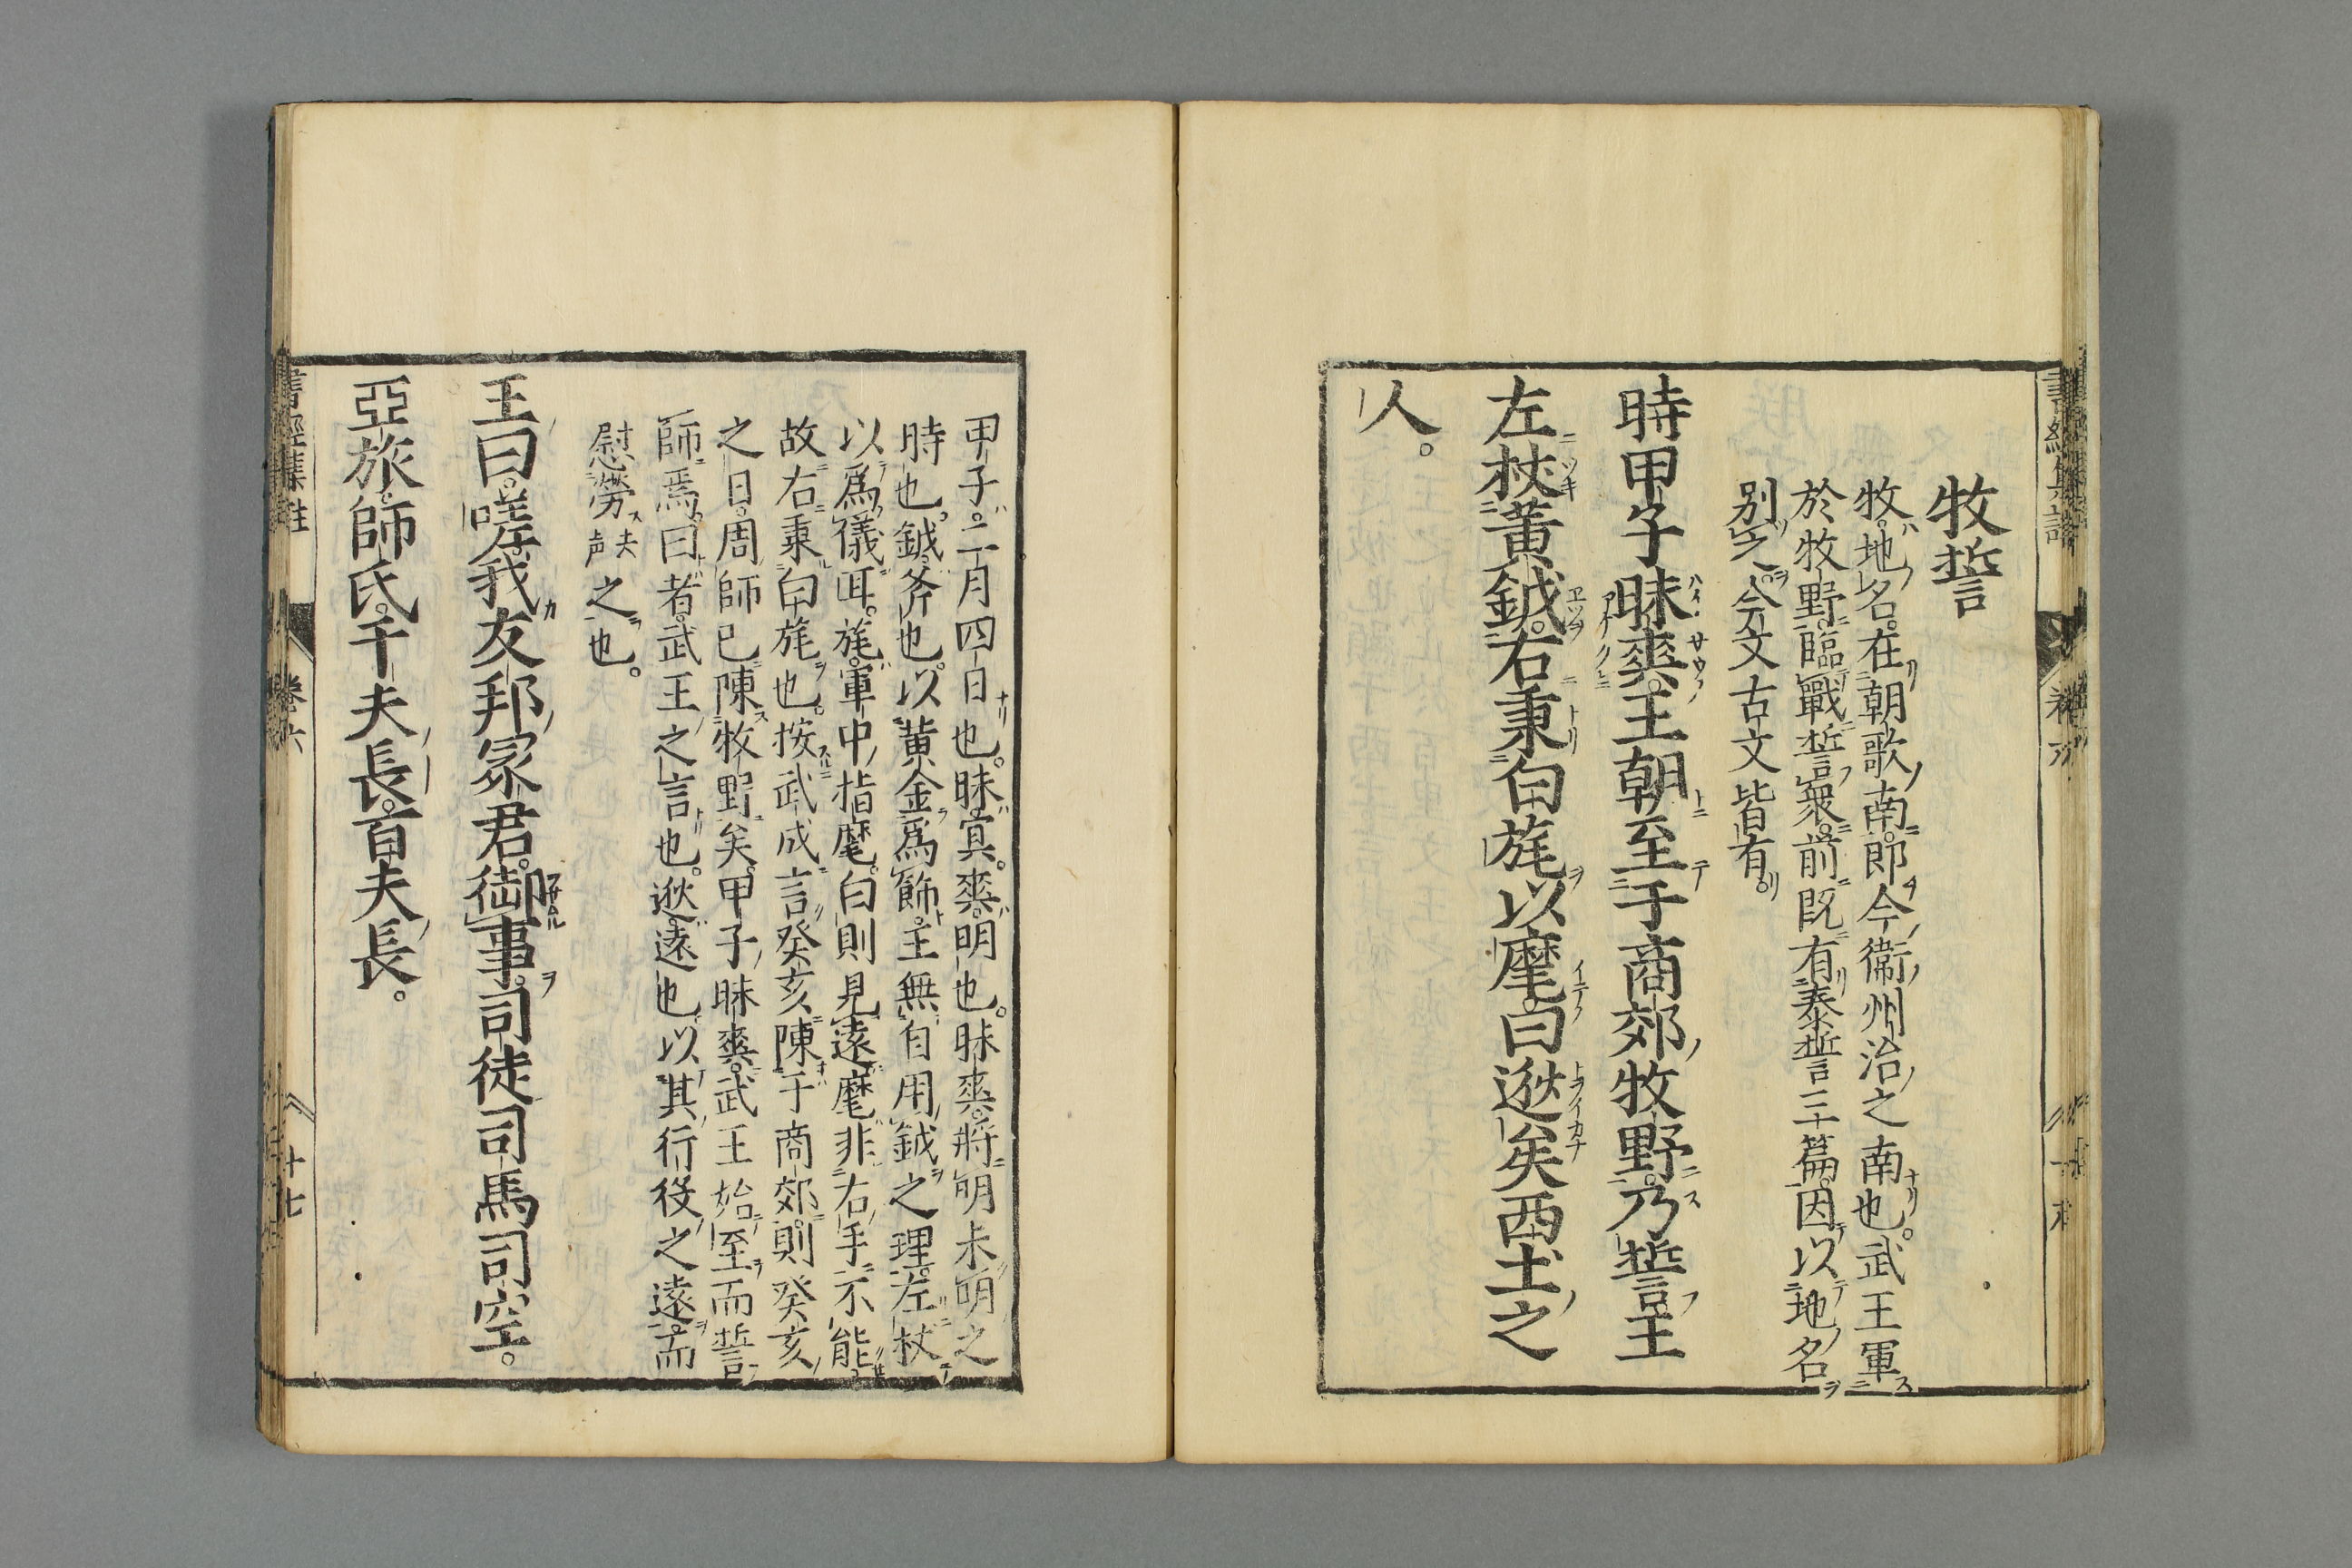 牧誓
牧。地名。在朝歌南。即今衞州治之南也。武王軍
於牧野。臨戰誓衆。前既有泰誓三篇。因以地名
別之。今文古文皆有。
時甲子昧爽。王朝至于商郊牧野。乃誓王
左杖黃鉞。右秉白旄以麾曰逖矣西土之
人。
甲子。二月四日也。昧。冥。爽。明也。昧爽。將明未明之
時也。鉞。斧也。以黄金爲飾。主無自用鉞之理。左杖
以爲儀耳。旄。軍中指麾。白則見遠。麾非右手不能。
故右秉白旄也。按武成言癸亥陳于商郊。則癸亥
之日。周師已陳牧野矣。甲子昧爽。武王始至而誓
師焉。曰者。武王之言也。逖。遠也。以其行役之遠。而
慰勞去声之也。
王曰。嗟。我友邦冢君。御事。司徒司馬司空。
亞旅。師氏。千夫長。百夫長。
書經集註 卷六 十七